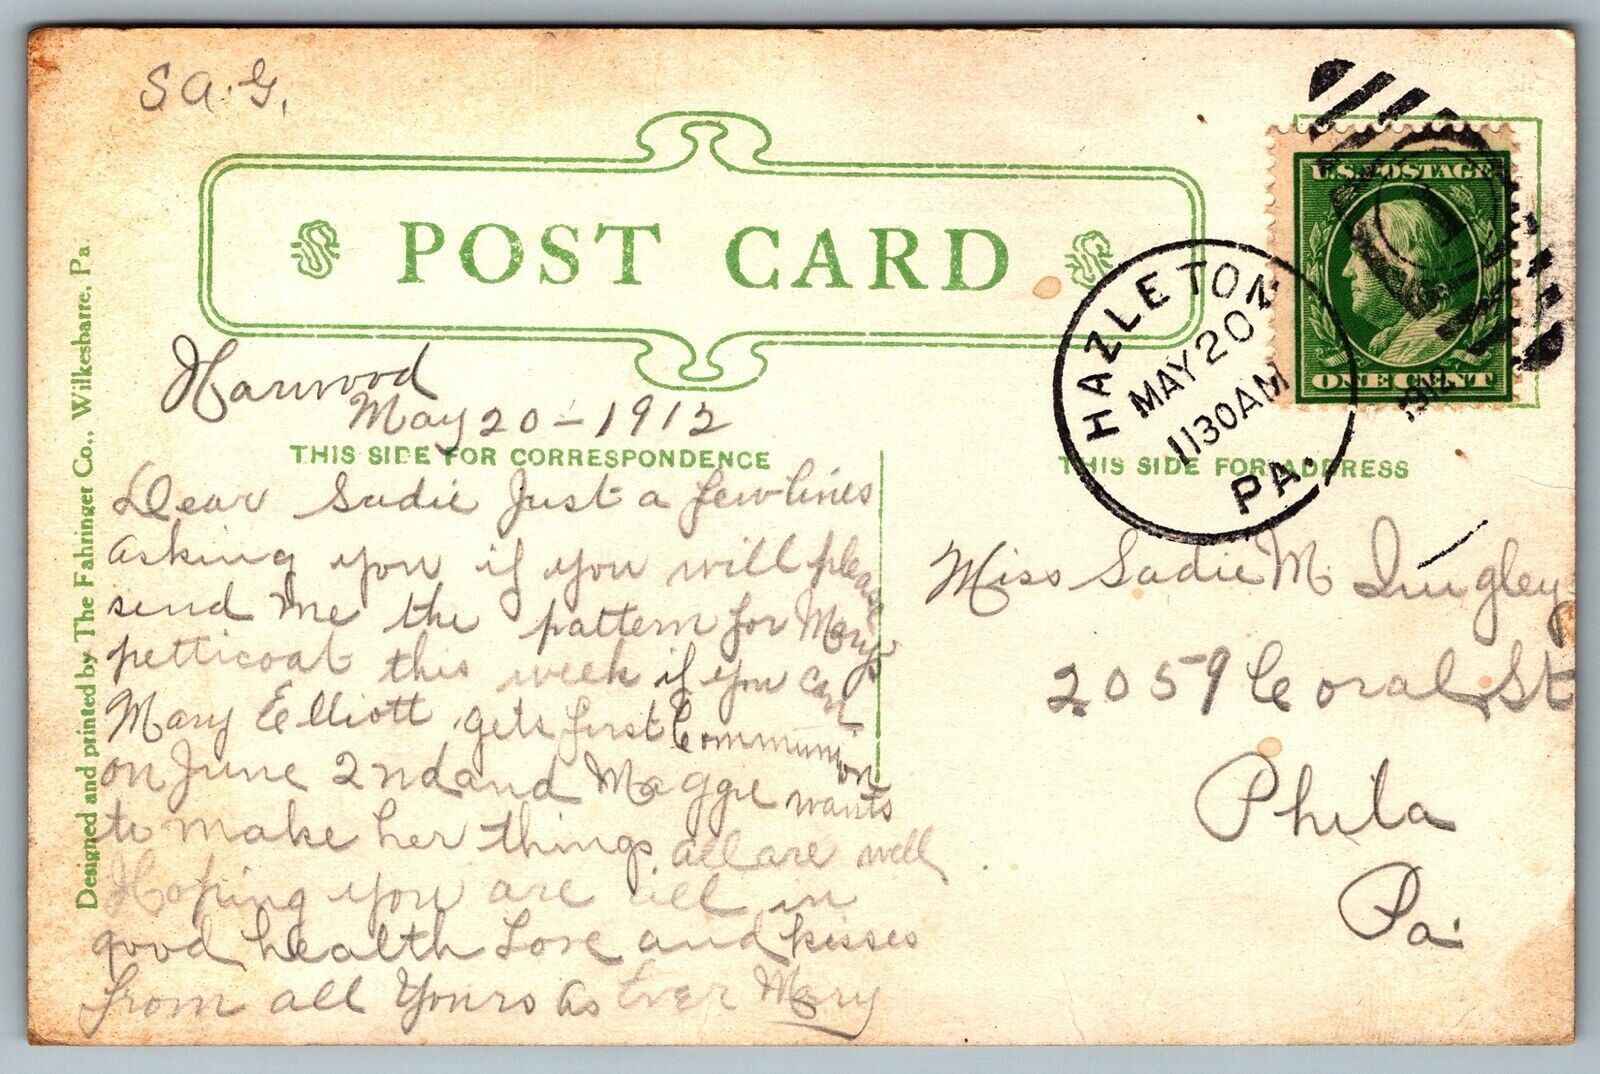 S A. G.
POST CARD
U.S. POSTAGE
ONE CENT
HAZLETON
MAY 20
1130AM
1912
PA.
Harwood
May 20 - 1912
THIS SIDE FOR CORRESPONDENCE
Dear Sadie Just a few lines
asking you if you will please
send me the pattern for Marys
petticoat this week if you can
Mary Elliott gets first Communion
on June 2nd and Maggie wants
to make her things all are well
Hoping you are all in
good health Love and kisses
from all Yours As Ever Mary
THIS SIDE FOR ADDRESS
Miss Sadie M. Quigley
2059 Coral St
Phila
Pa.
Designed and printed by The Fahringer Co., Wilkesbarre, Pa.